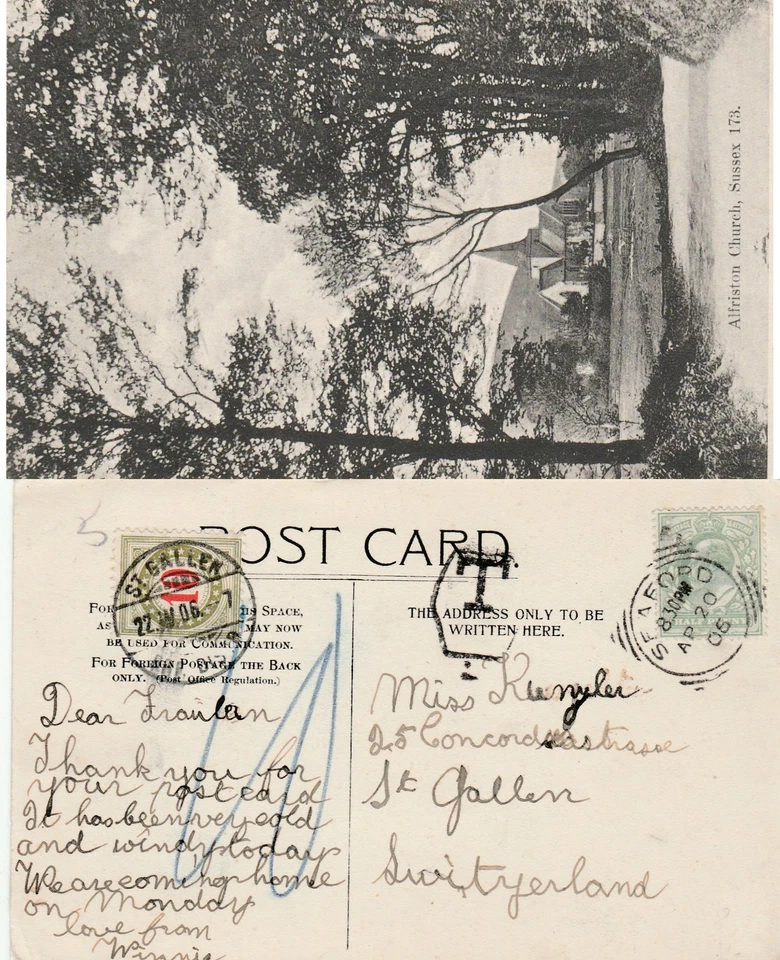 Alfriston Church, Sussex 173.
POST CARD.
5
ST. GALLEN
10
22.IV.06. 7
T
HALF PENNY
SEAFORD
8.30PM
AP 20
06
FOR
THIS SPACE,
AS
MAY NOW
BE USED FOR COMMUNICATION.
FOR FOREIGN POSTAGE THE BACK
ONLY. (Post Office Regulation.)
THE ADDRESS ONLY TO BE
WRITTEN HERE.
10
Dear Fraulan
Thank you for
your postcard
It has been very cold
and windy today
We are coming home
on Monday
love from
Winnie
Miss Kunzler
25 Concordiastrasse
St Gallen
Switzerland